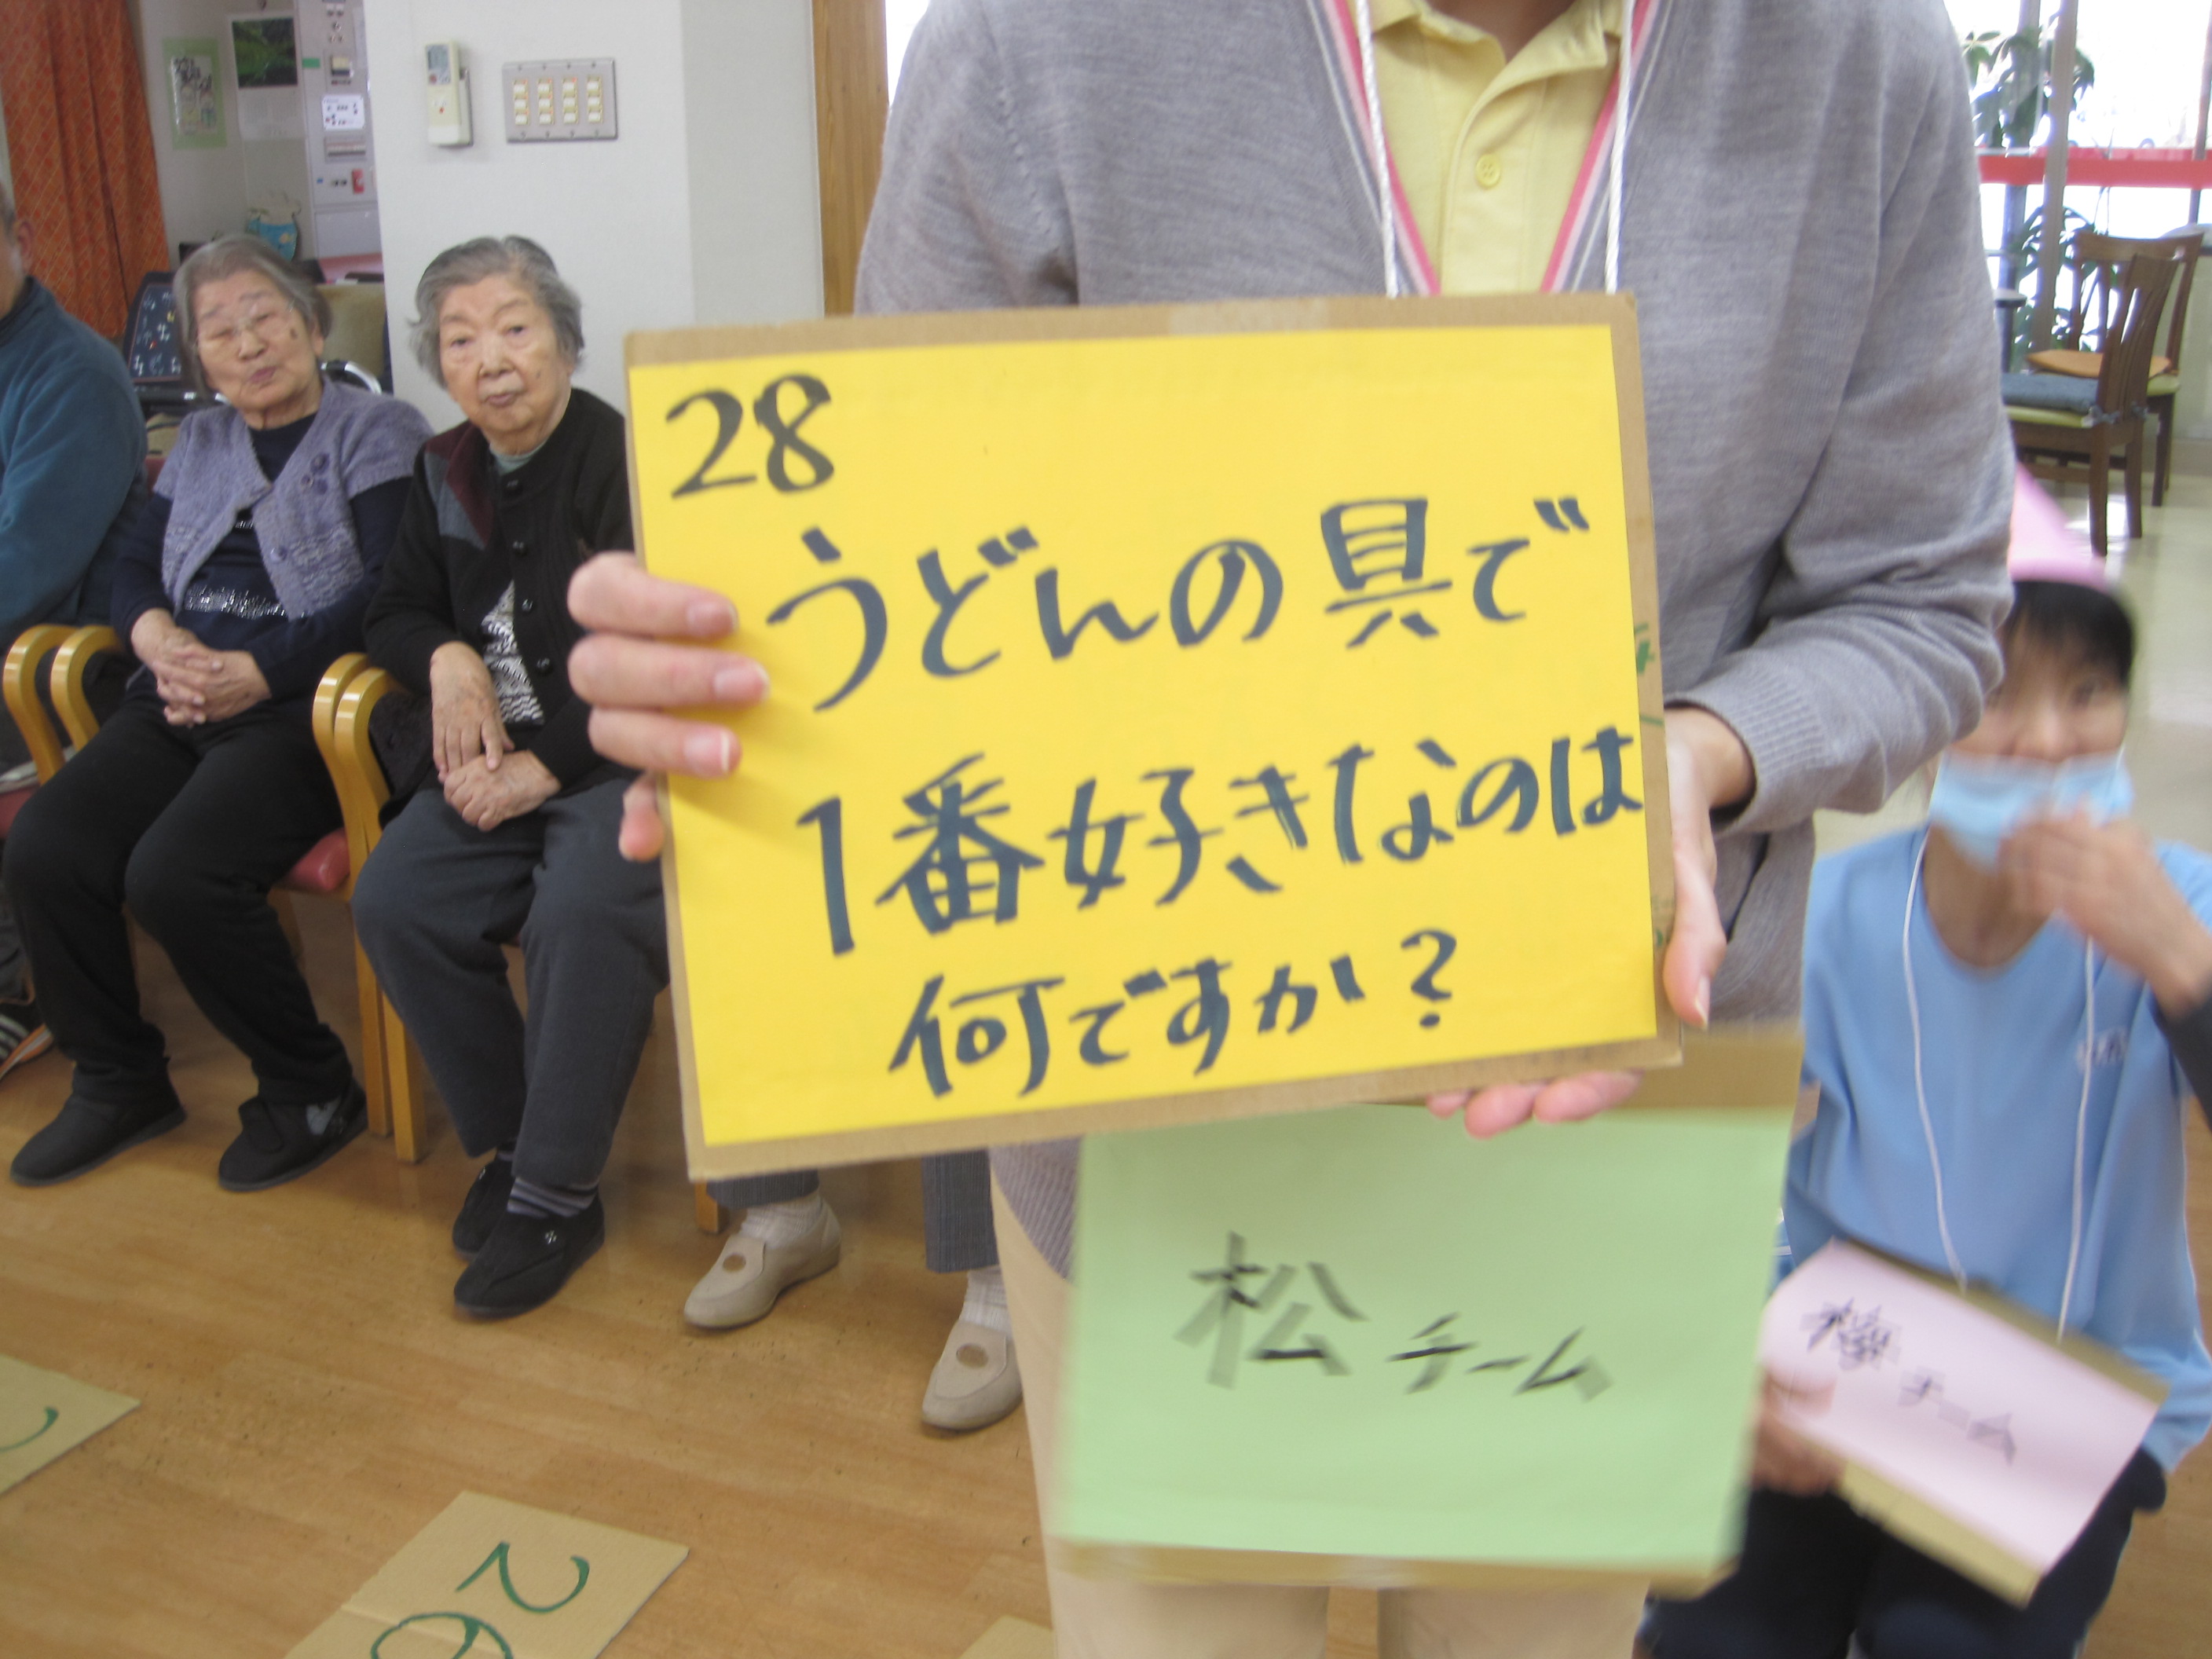 28
うどんの具で
1番好きなのは
何ですか?
松チーム
チーム
26